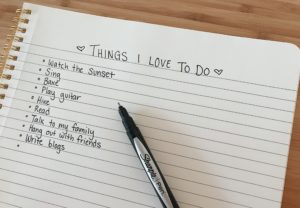 ♡ THINGS I LOVE TO DO ♡
• Watch the sunset
• Sing
• Bake
• Play guitar
• Hike
• Read
• Talk to my family
• Hang out with friends
• Write blogs
Sharpie PEN